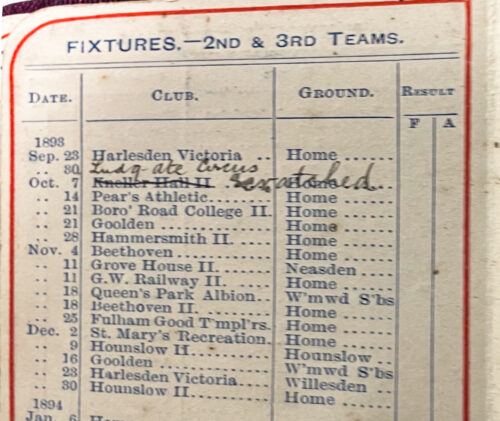 FIXTURES.—2ND & 3RD TEAMS.
DATE. CLUB. GROUND. RESULT
F A
1893
Sep. 23 Harlesden Victoria .. Home ......
.. 30 Ludgate Circus
Oct. 7 Kneller Hall II .. Home scratched
.. 14 Pear's Athletic........ Home ......
.. 21 Boro' Road College II. Home ......
.. 21 Goolden .............. Home ......
.. 28 Hammersmith II. ...... Home ......
Nov. 4 Beethoven............ Home ......
.. 11 Grove House II. ...... Neasden ....
.. 11 G.W. Railway II. ...... Home ......
.. 18 Queen's Park Albion.. W'mwd S'bs
.. 18 Beethoven II. ........ Home ......
.. 25 Fulham Good T'mpl'rs. Home ......
Dec. 2 St. Mary's Recreation. Home ......
.. 9 Hounslow II.......... Hounslow ..
.. 16 Goolden ............ W'mwd S'bs
.. 23 Harlesden Victoria.... Willesden ..
.. 30 Hounslow II.......... Home ......
1894
Jan. 6